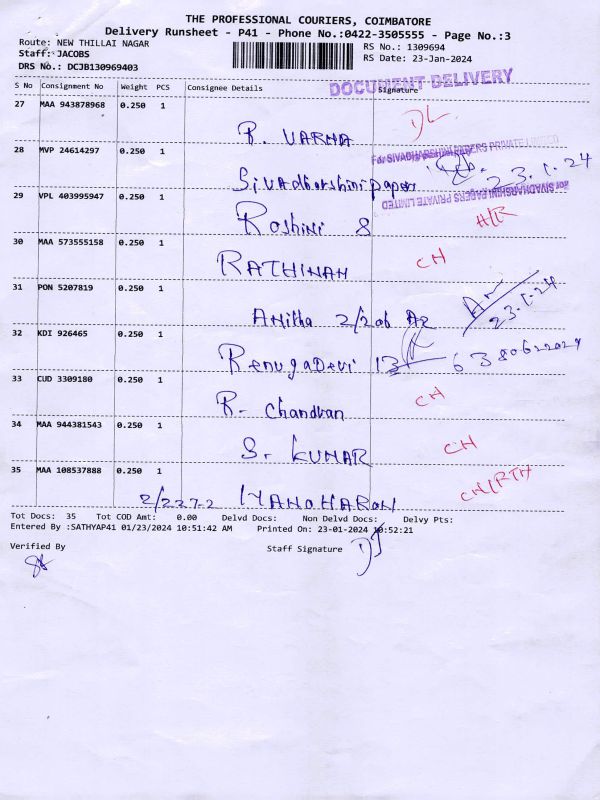 THE PROFESSIONAL COURIERS, COIMBATORE
Delivery Runsheet - P41 - Phone No.:0422-3505555 - Page No.:3
Route: NEW THILLAI NAGAR
RS No.: 1309694
Staff: JACOBS
RS Date: 23-Jan-2024
DRS No.: DCJB130969403
DOCUMENT DELIVERY
S No Consignment No Weight PCS Consignee Details Signature
27 MAA 943878968 0.250 1
R. VARMA DL
28 MVP 24614297 0.250 1
For SIVADHARSHINI PAPERS PRIVATE LIMITED
Sivadharshini paper 23.1.24
29 VPL 403995947 0.250 1
For SIVADHARSHINI PAPERS PRIVATE LIMITED
Roshini 8 H/R
30 MAA 573555158 0.250 1
RATHINAM CH
31 PON 5207819 0.250 1
Anitha 2/206 A2 23.1.24
32 KDI 926465 0.250 1
RenugaDevi 13
33 CUD 3309180 0.250 1
R. Chandran CH
34 MAA 944381543 0.250 1
S. KUMAR CH
35 MAA 108537888 0.250 1
2/227-2 MANOHARON CH/RTH
Tot Docs: 35 Tot COD Amt: 0.00 Delvd Docs: Non Delvd Docs: Delvy Pts:
Entered By :SATHYAP41 01/23/2024 10:51:42 AM Printed On: 23-01-2024 10:52:21
Verified By Staff Signature